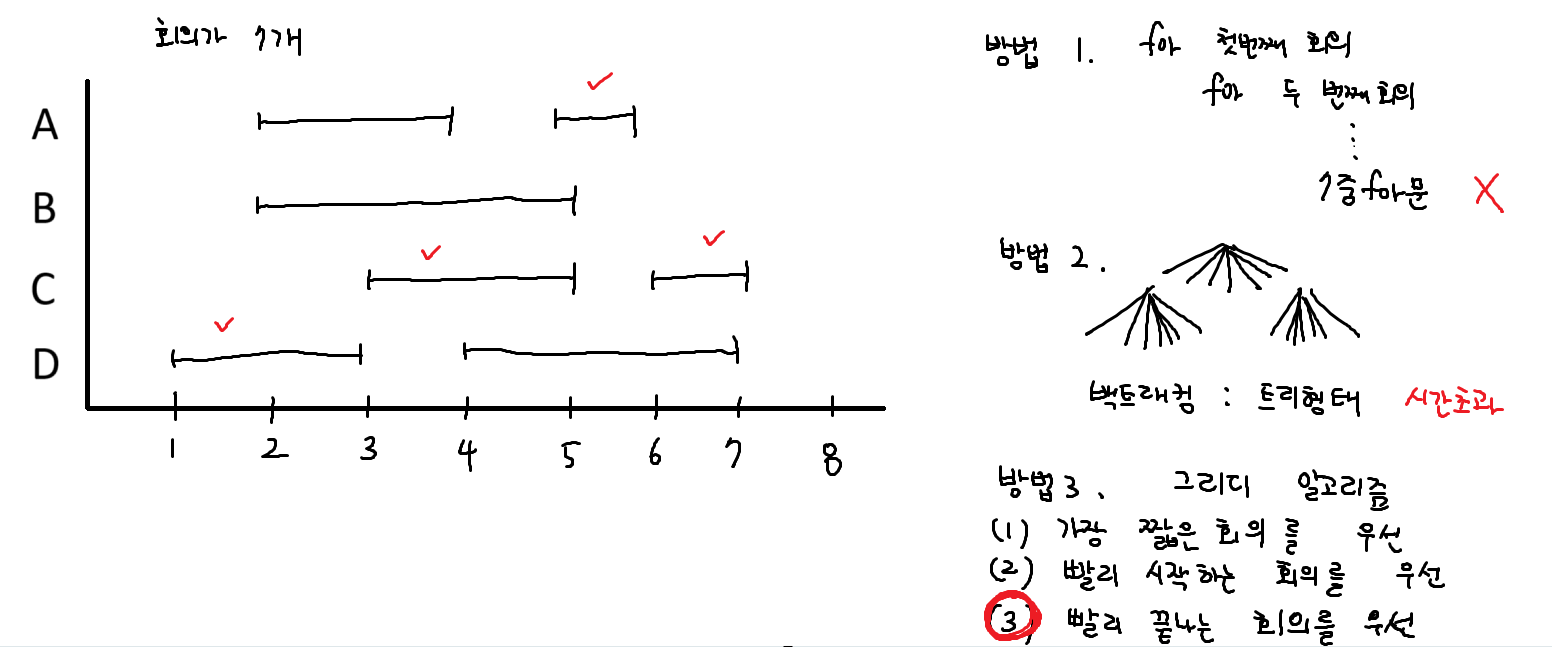 회의가 7개
A
B
C
D
1 2 3 4 5 6 7 8
방법 1. for 첫번째 회의
for 두 번째 회의
7중 for문 X
방법 2.
백트래킹 : 트리형태 시간초과
방법 3. 그리디 알고리즘
(1) 가장 짧은 회의를 우선
(2) 빨리 시작하는 회의를 우선
(3) 빨리 끝나는 회의를 우선